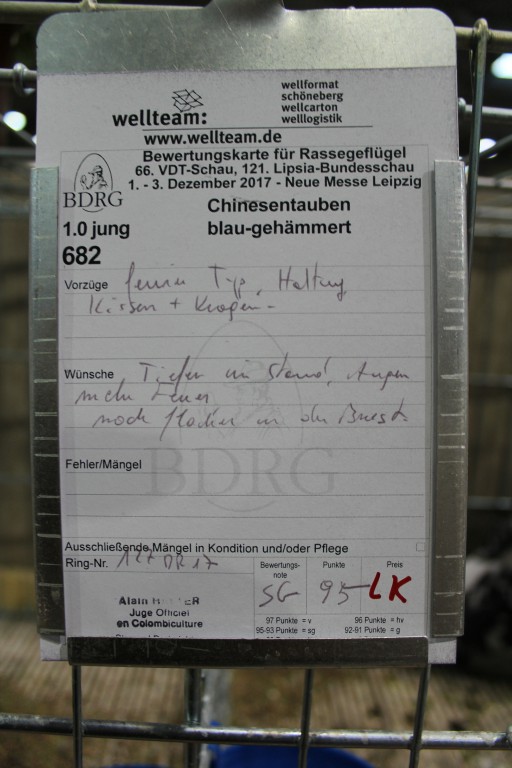 wellteam:
wellformat
schöneberg
wellcarton
welllogistik
www.wellteam.de
BDRG
Bewertungskarte für Rassegeflügel
66. VDT-Schau, 121. Lipsia-Bundesschau
1. - 3. Dezember 2017 - Neue Messe Leipzig
Chinesentauben
1.0 jung blau-gehämmert
682
Vorzüge Typ, Haltung
Kissen + Kragen
Wünsche Tiefer im Stand, Augen
mehr Feuer
noch flacher in der Brust
BDRG
Fehler/Mängel
Ausschließende Mängel in Kondition und/oder Pflege
Ring-Nr. 127 DR 17
Bewertungs-
note Punkte Preis
SG 95 LK
Alain
Juge Officiel
en Colombiculture
97 Punkte = v 96 Punkte = hv
95-93 Punkte = sg 92-91 Punkte = g